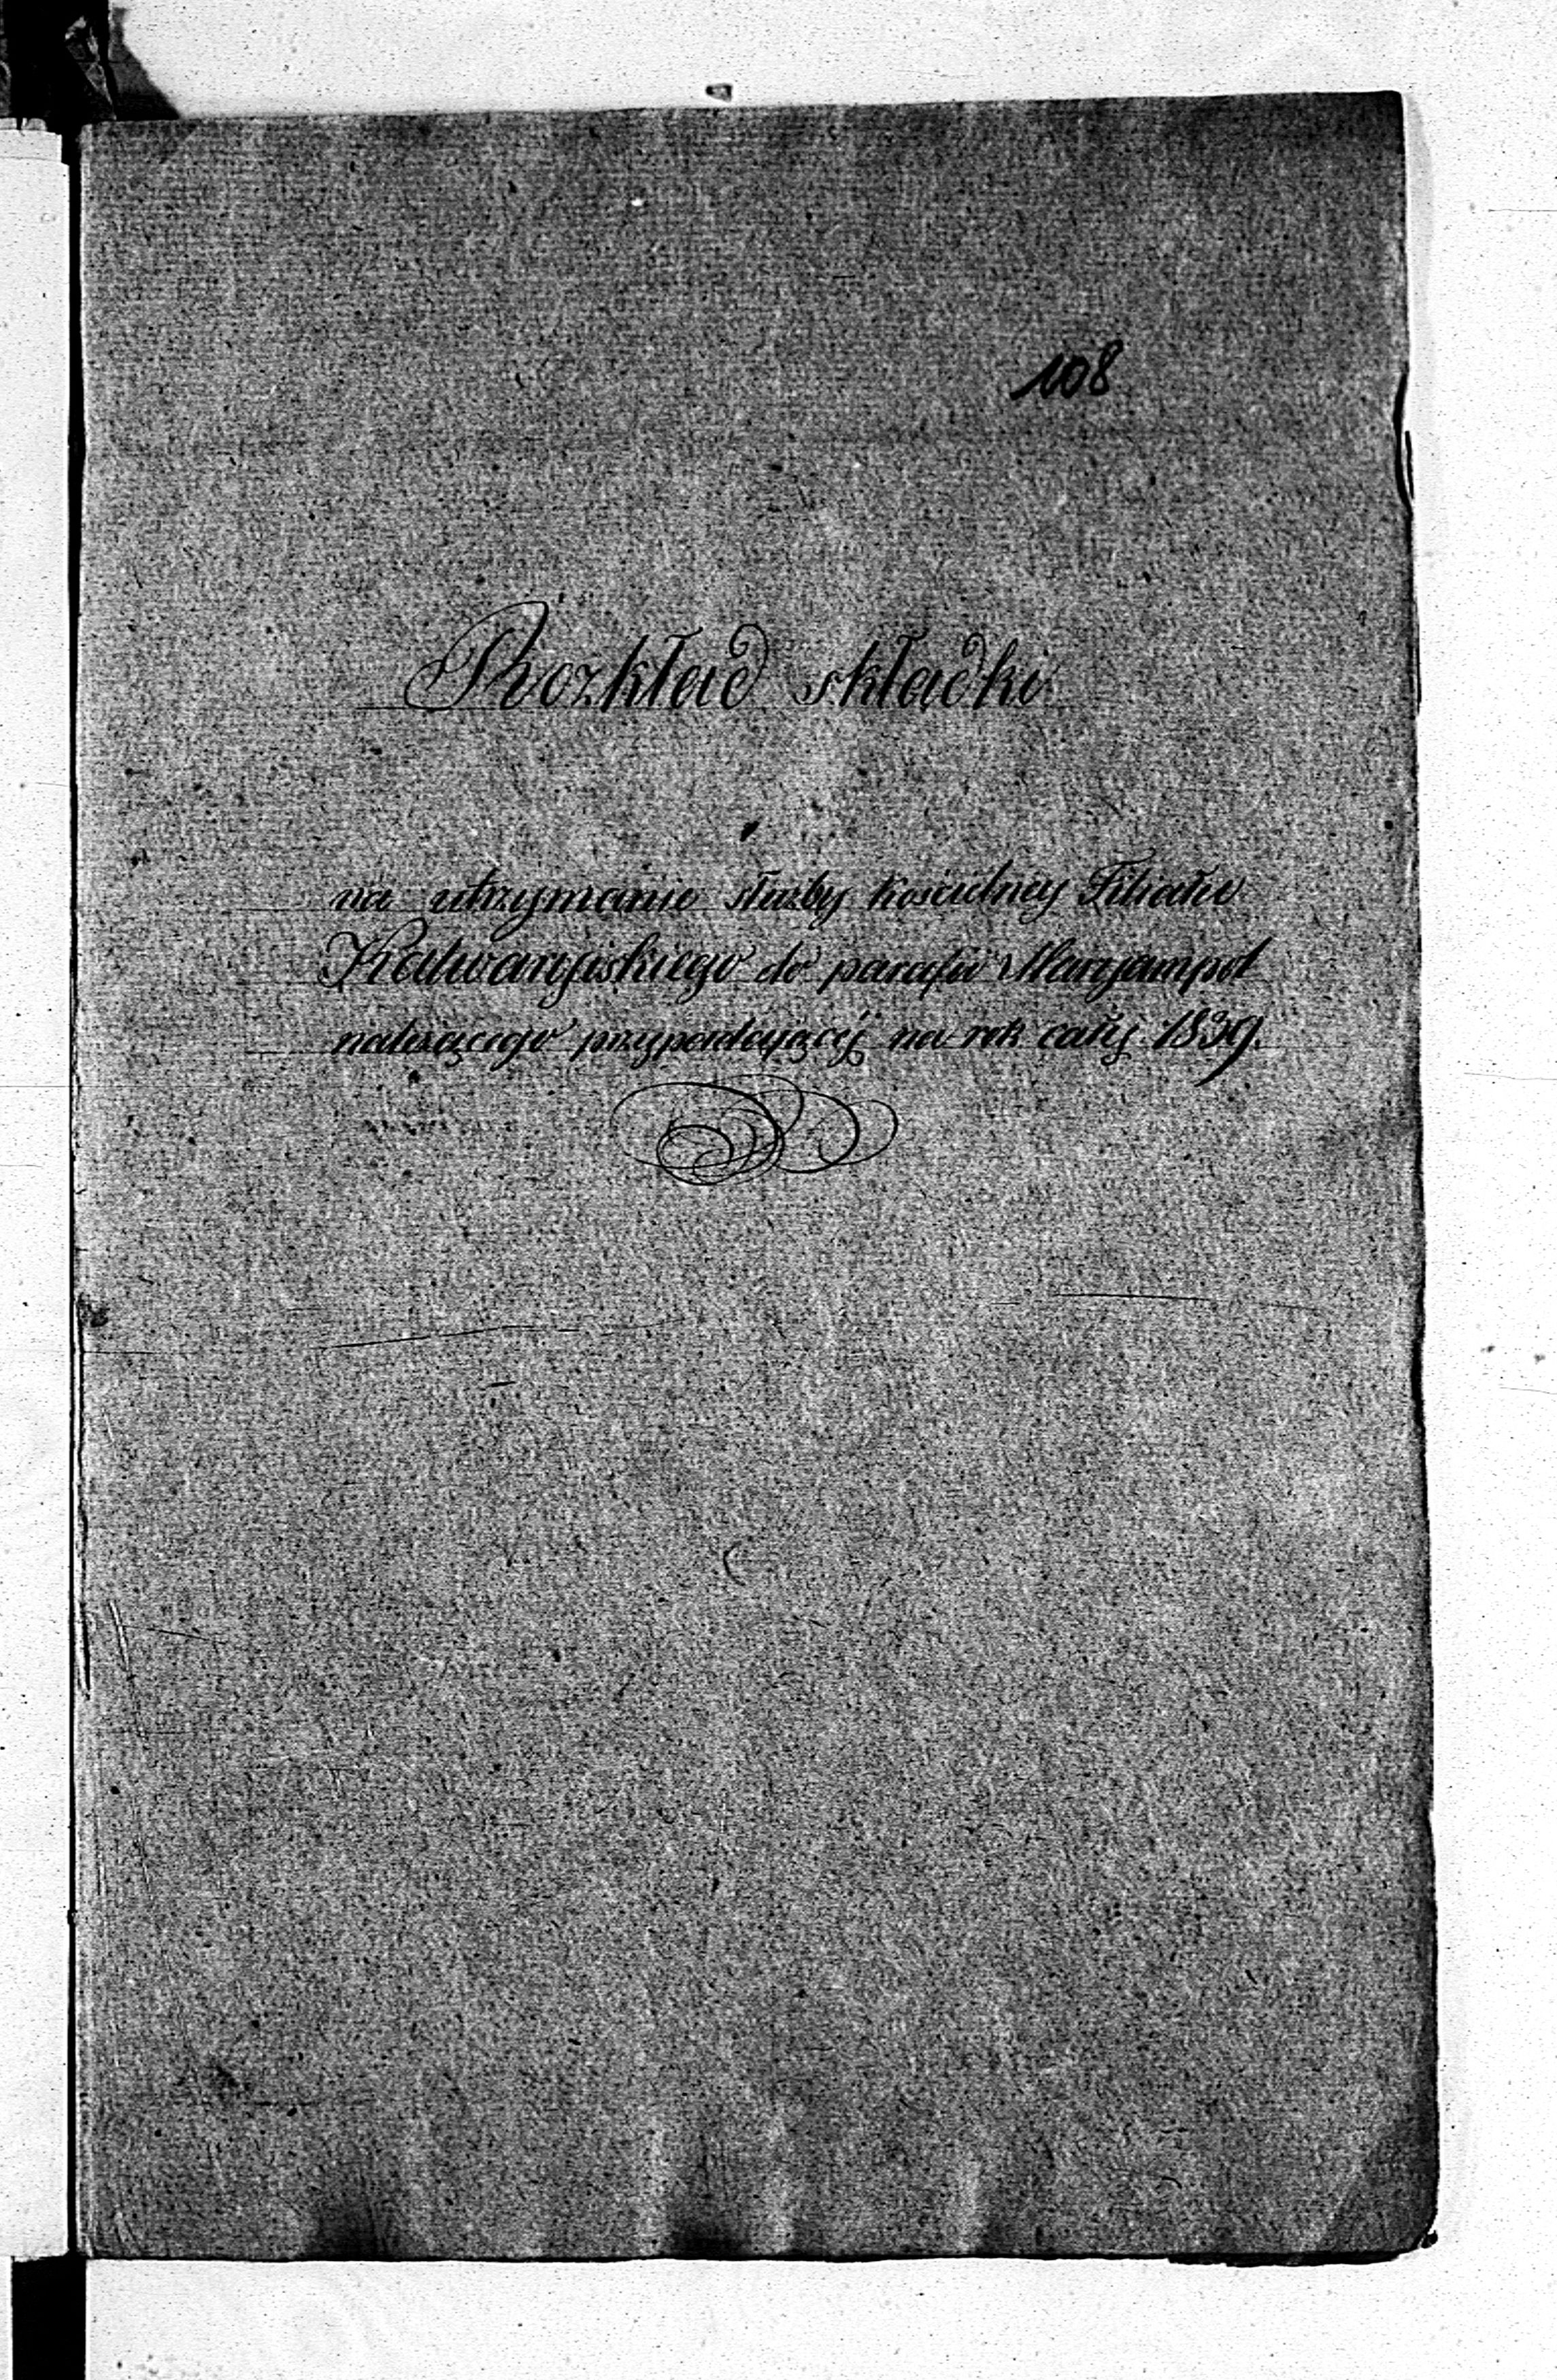 108
Rozkład składki
na utrzymanie służby kościelney Filiału
Kalwaryjskiego do parafii Maryampol
należącego przypadającéj na rok cały 1839.